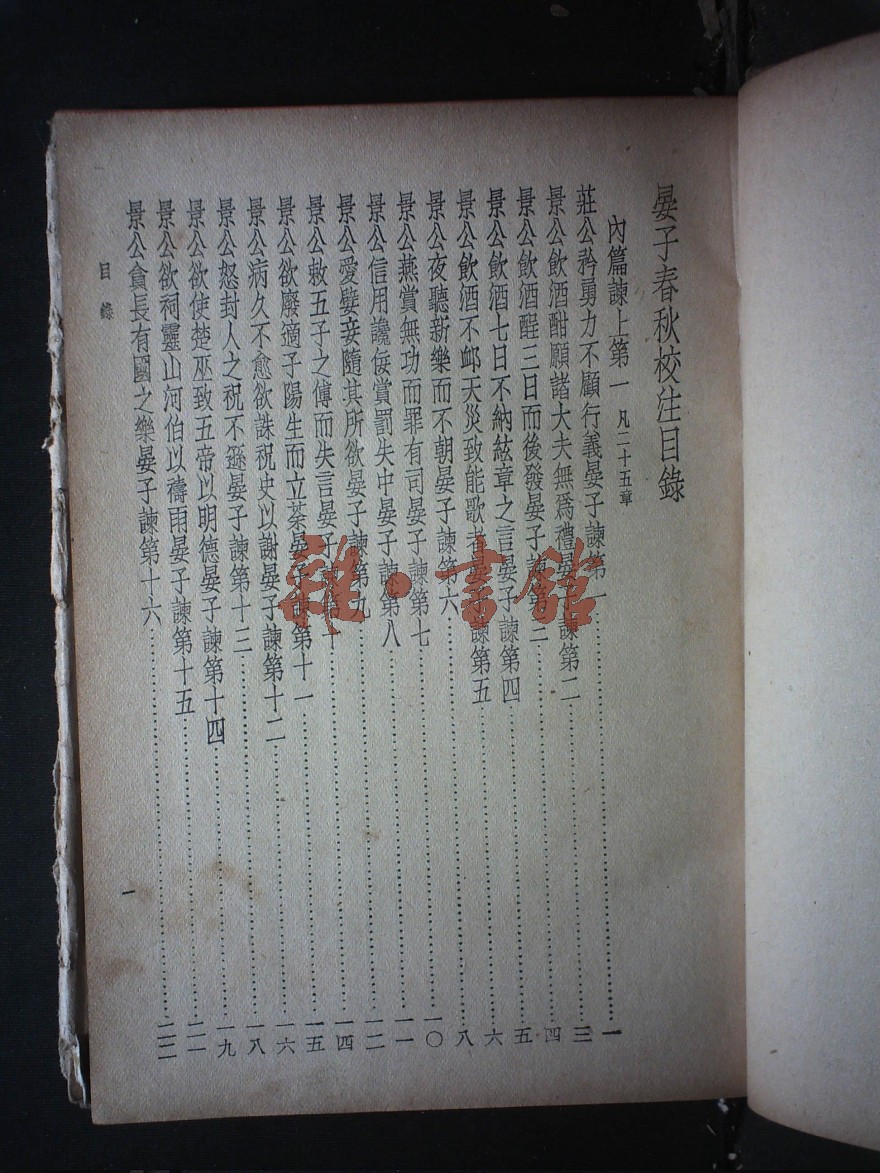 晏子春秋校注目錄
內篇諫上第一 凡二十五章
莊公矜勇力不顧行義晏子諫第一……一
景公飲酒酣願諸大夫無爲禮晏子諫第二……三
景公飲酒酲三日而後發晏子諫第三……四
景公飲酒七日不納絃章之言晏子諫第四……五
景公飲酒不卹天災致能歌者晏子諫第五……六
景公夜聽新樂而不朝晏子諫第六……八
景公燕賞無功而罪有司晏子諫第七……一〇
景公信用讒佞賞罰失中晏子諫第八……一一
景公愛嬖妾隨其所欲晏子諫第九……一二
景公敕五子之傅而失言晏子諫第十……一四
景公欲廢適子陽生而立荼晏子諫第十一……一五
景公病久不愈欲誅祝史以謝晏子諫第十二……一六
景公怒封人之祝不遜晏子諫第十三……一八
景公欲使楚巫致五帝以明德晏子諫第十四……一九
景公欲祠靈山河伯以禱雨晏子諫第十五……二一
景公貪長有國之樂晏子諫第十六……二二
目錄
一
雜·書館